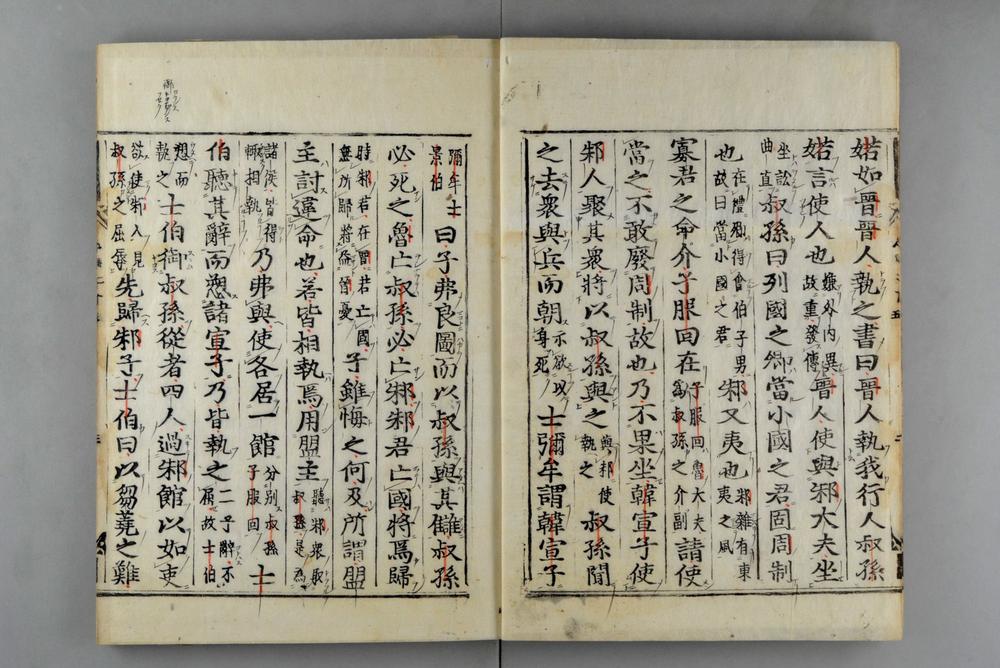 婼如晉晉人執之書曰晉人執我行人叔孫
婼言使人也嫌外内異故重發傳晉人使與邾大夫坐
坐訟曲直叔孫曰列國之卿當小國之君固周制
也在禮卿得會伯子男故曰當小國之君邾又夷也邾雜有東夷之風
寡君之命介子服回在子服回魯大夫爲叔孫之介副請使
當之不敢廢周制故也乃不果坐韓宣子使
邾人聚其衆將以叔孫與之與邾使執之叔孫聞
之去衆與兵而朝示欲以身死士彌牟謂韓宣子
彌牟士景伯曰子弗良圖而以叔孫與其讎叔孫
必死之魯亡叔孫必亡邾邾君亡國將焉歸
時邾君在晉若亡國無所歸將益晉憂子雖悔之何及所謂盟
主討違命也若皆相執焉用盟主聽邾衆取叔孫是爲
諸侯皆得輒相執乃弗與使各居一館分別叔孫子服回士
伯聽其辭而愬諸宣子乃皆執之二子辭不屈故士伯
愬而執之士伯御叔孫從者四人過邾館以如吏
欲使邾人見叔孫之屈辱先歸邾子士伯曰以芻蕘之難